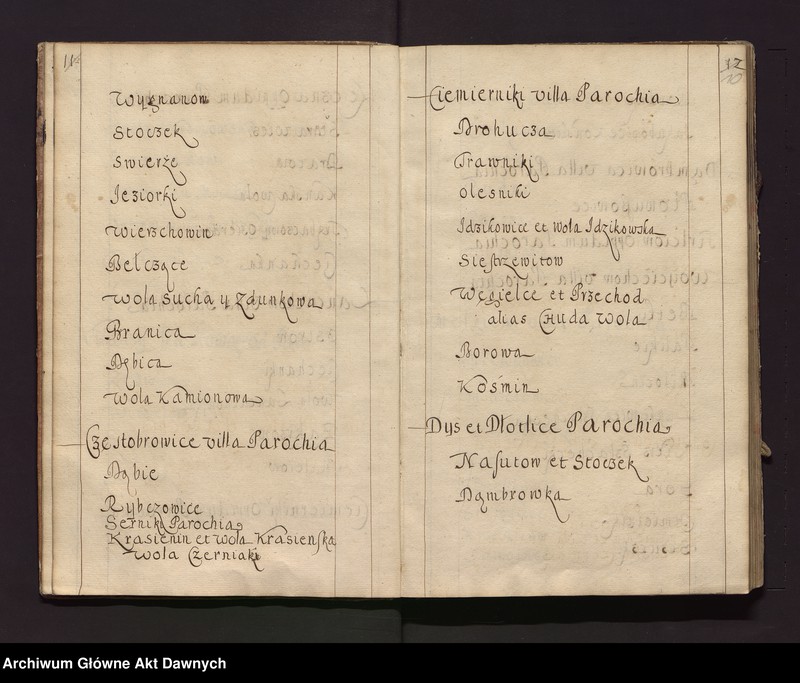 Wygnanow
Stoczek
Swierze
Jeziorki
Wierzchowin
Belczące
Wola Sucha y Zdunkowa
Branica
Dębica
Wola Kamionowa
Częstobrowice villa Parochia
Dąbie
Rybczowice
Serniki Parochia
Krasienin et Wola Krasienska
Wola Czerniaki
12
Ciemierniki villa Parochia
Brohucza
Trawniki
Olesniki
Idzikowice et Wola Idzikowska
Siestrzewitow
Węgielce et Przechod
alias Chuda Wola
Borowa
Kośmin
Dys et Dłotlice Parochia
Nasutow et Stoczek
Dąmbrowka
Archiwum Główne Akt Dawnych